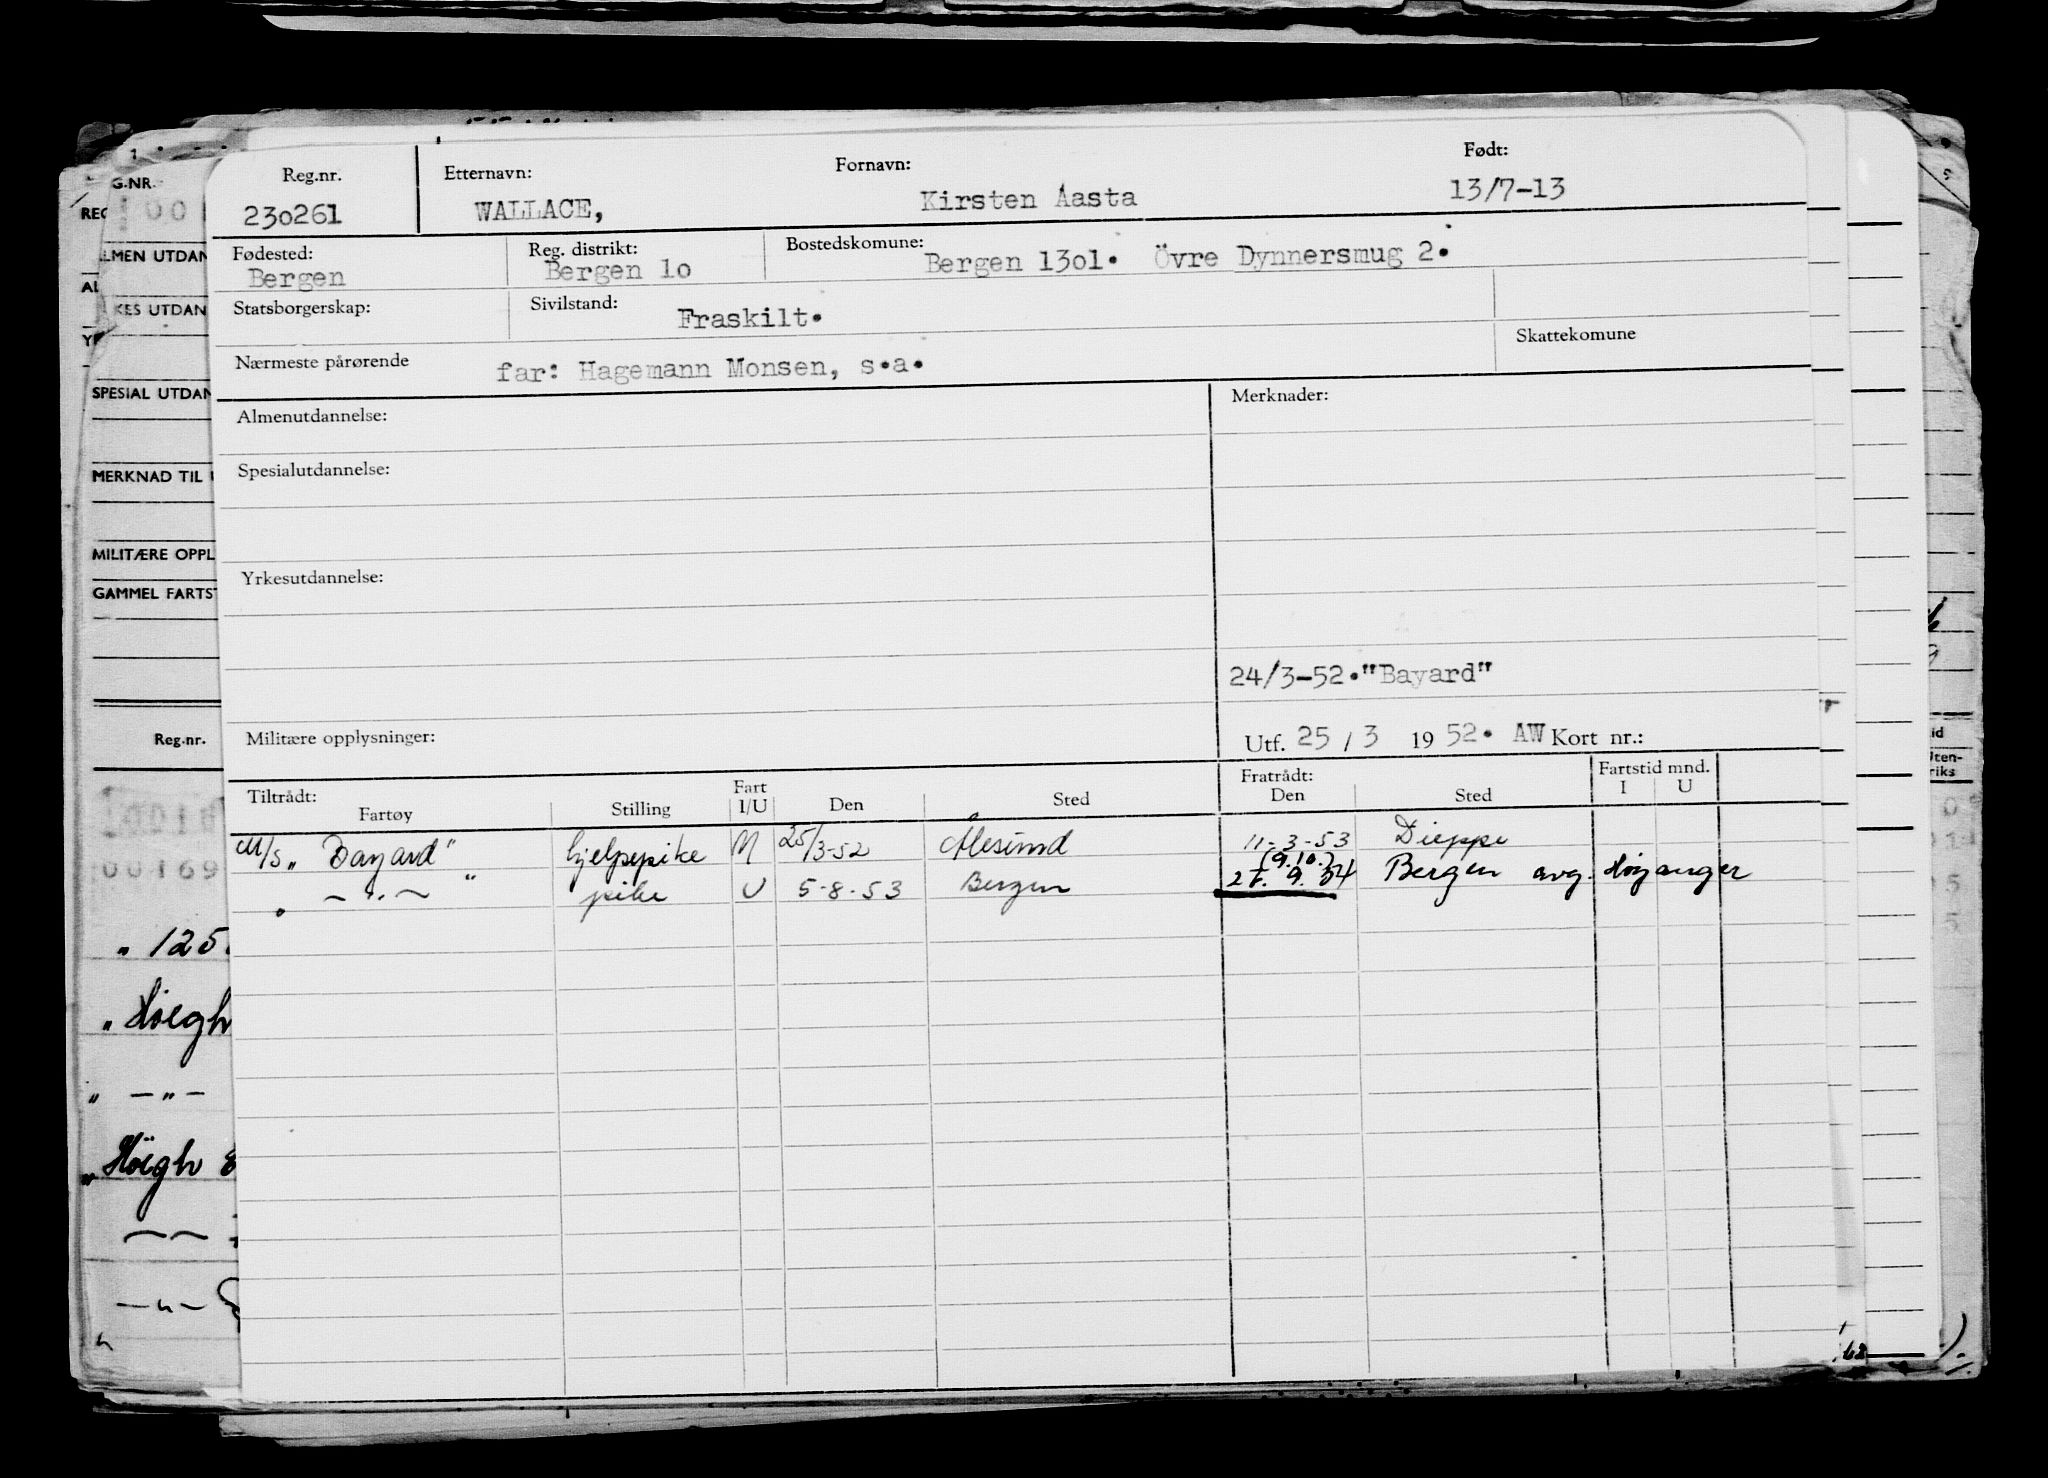 Reg.nr. Etternavn: Fornavn: Født:
230261 WALLACE, Kirsten Aasta 13/7-13
Fødested: Reg. distrikt: Bostedskomune:
Bergen Bergen 1o Bergen 13o1. Övre Dynnersmug 2.
Statsborgerskap: Sivilstand: Fraskilt.
Skattekomune
Nærmeste pårørende far: Hagemann Monsen, s.a.
Almenutdannelse: Merknader:
Spesialutdannelse:
Yrkesutdannelse:
24/3-52."Bayard"
Militære opplysninger: Utf. 25 / 3 19 52. AW Kort nr.:
Tiltrådt: Fart Fratrådt: Fartstid mnd.
Fartøy Stilling I/U Den Sted Den Sted I U
M/S „ Bayard " hjelpepike N 25/3-52 Ålesund 11-3-53 Dieppe
(9.10.)
„ - " - " pike U 5-8-53 Bergen 9. 54 Bergen avg. Høyanger
G.NR.
REG
LMEN UTDAN
AL
KES UTDAN
SPESIAL UTDAN
MERKNAD TIL
MILITÆRE OPPL
GAMMEL FARTST
Reg.nr.
00169
„ 125
„ Höegh
„ - „ -
„ Höegh
- „ -
id
Uten-
riks